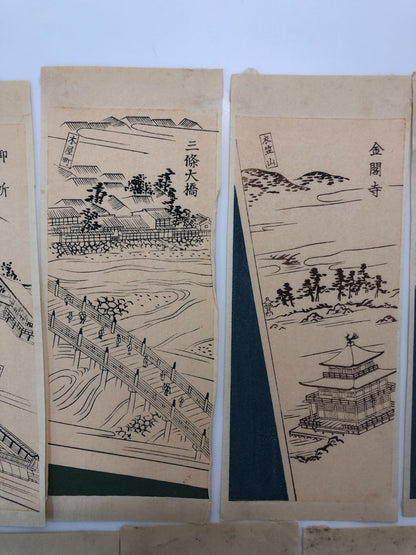 金閣寺
衣笠山
三條大橋
木屋町
御所